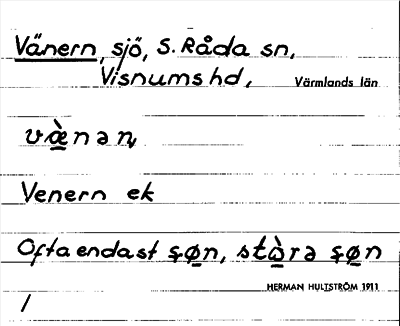 Vänern, sjö, S. Råda sn,
Visnums hd, Värmlands län
væ̀nəɳ
Venern ek
Ofta endast ʂøn, stòrə ʂøn
HERMAN HULTSTRÖM 1911
/